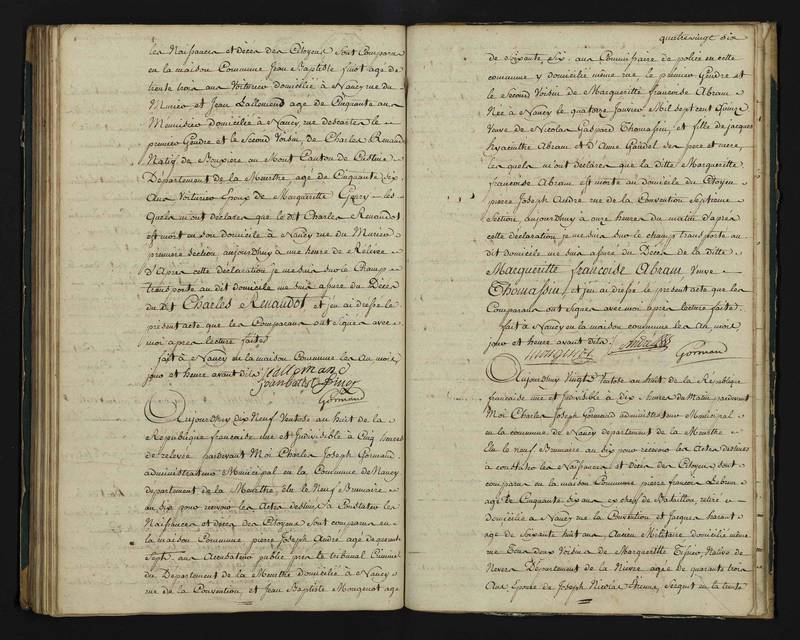 les Naissances et Décès des Citoyens sont Comparus
en la maison Commune Jean Baptiste finot agé de
trente trois ans Voiturier domicilié à Nancy rue du
Murier et Jean Lallemend agé de Cinquante ans
Menuisier domicilié à Nancy rue descartes le
premier Gendre et le Second Voisin de Charles Renaud
Natif de au Mont Canton de Custine
Département de la Meurthe agé de Cinquante Six
Ans Voiturier Epoux de Marguerite Guery les
Quels m'ont déclarés que le dit Charles Renaudot
est mort en son domicile à Nancy rue du Murier
premiere Section aujourdhuy à une heure de Rélévée
D'Après cette déclaration je me suis sur le Champ
transporté au dit domicile me suis assuré du Décès
du dit Charles Renaudot et j'en ai dressé le
présent acte que les Comparans ont signés avec
moi après lecture faite
fait à Nancy en la maison Commune les An mois
jour et heure avant dits Lallemand
Jeanbatist finot
Gormand
Aujourdhuy Dix Neuf Ventose an huit de la
République française une et Indivisible à Cinq heures
de relevée pardevant Moi Charles Joseph Gormand
administrateur Municipal en la Commune de Nancy
département de la Meurthe, Elu le Neuf Brumaire
an dix pour recevoir les Actes destinés à Constater les
Naissances et décès des Citoyens sont comparus en
la maison Commune pierre Joseph André agé de
Sept ans Accusateur public près le tribunal Criminel
du Département de la Meurthe Domicilié à Nancy
rue de la Convention, et Jean Baptiste Mougenot agé
quatre vingt dix
de Soixante Six ans Commissaire de police en cette
commune y domicilié même rue le premier Gendre et
le Second Voisin de Marguerite francoise Abram
Née à Nancy le quatorze Janvier Mil Sept cent Quinze
Veuve de Nicolas Gaspard Thomassin, et fille de Jacques
hyacinthe Abram et D'Anne Gaudel ses pere et mere,
les quels m'ont déclarés que la ditte Marguerite
françoise Abram est morte au domicile du Citoyen
pierre Joseph André rue de la Convention Septieme
Section, aujourdhuy à onze heures du matin d'après
cette déclaration je me suis sur le champ transporté au
dit domicile me suis assuré du Décès de la ditte
Marguerite francoise Abram Veuve
Thomassin et j'en ai dressé le present acte que les
Comparans ont signés avec moi après lecture faite
fait à Nancy en la maison commune les An, mois
jour et heure avant dits
Mougenot André
Gormand
Aujourdhuy Vingt Ventose an huit de la République
française une et Indivisible à Dix heures du Matin pardevant
Moi Charles Joseph Gormand administrateur Municipal
en la commune de Nancy département de la Meurthe
Elu le neuf Brumaire an dix pour recevoir les Actes destinés
à constater les Naissances et Décès des Citoyens sont
comparus en la maison Commune pierre francois Lebrun
agé de Cinquante dix ans ex chef de Bataillon, retiré
Domicilié à Nancy rue la Convention et Jacques
age de Soixante huit ans Ancien Militaire domicilié même
rue tous deux Voisins de Marguerite Tissier, Native de
Nevers Département de la Nievre agée de quarante trois
Ans Epouse de Joseph Nicolas Etienne, Sergent en la trente